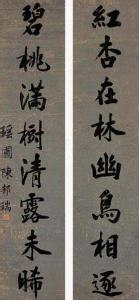 紅杏在林幽鳥相逐
碧桃滿樹清露未晞
瑶圃陳邦瑞